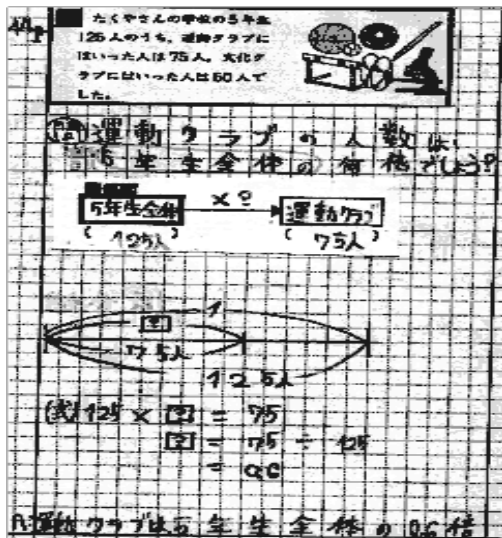 44P
たくやさんの学校の5年生
125人のうち、運動クラブに
はいった人は75人、文化ク
ラブにはいった人は50人で
した。
問 運動クラブの人数は、
5年生全体の何倍でしょう?
5年生全体 ×? 運動クラブ
(125人) (75人)
1
?
75人
125人
(式) 125 × ? = 75
? = 75 ÷ 125
= 0.6
A.運動クラブは5年生全体の0.6倍